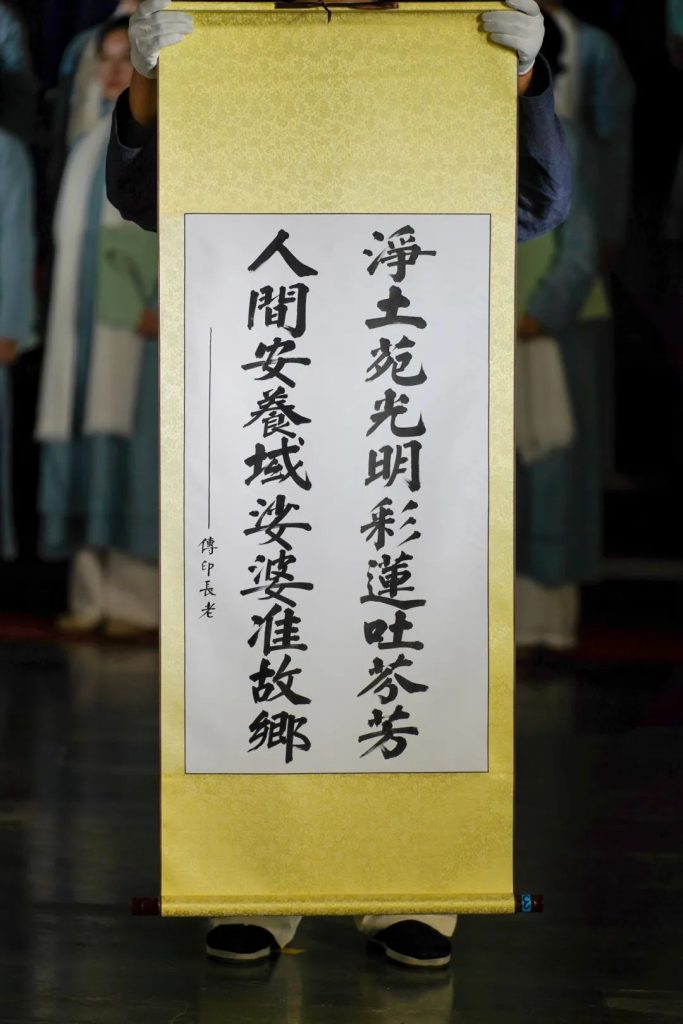 淨土苑光明彩蓮吐芬芳
人間安養域娑婆准故鄉
——傳印長老